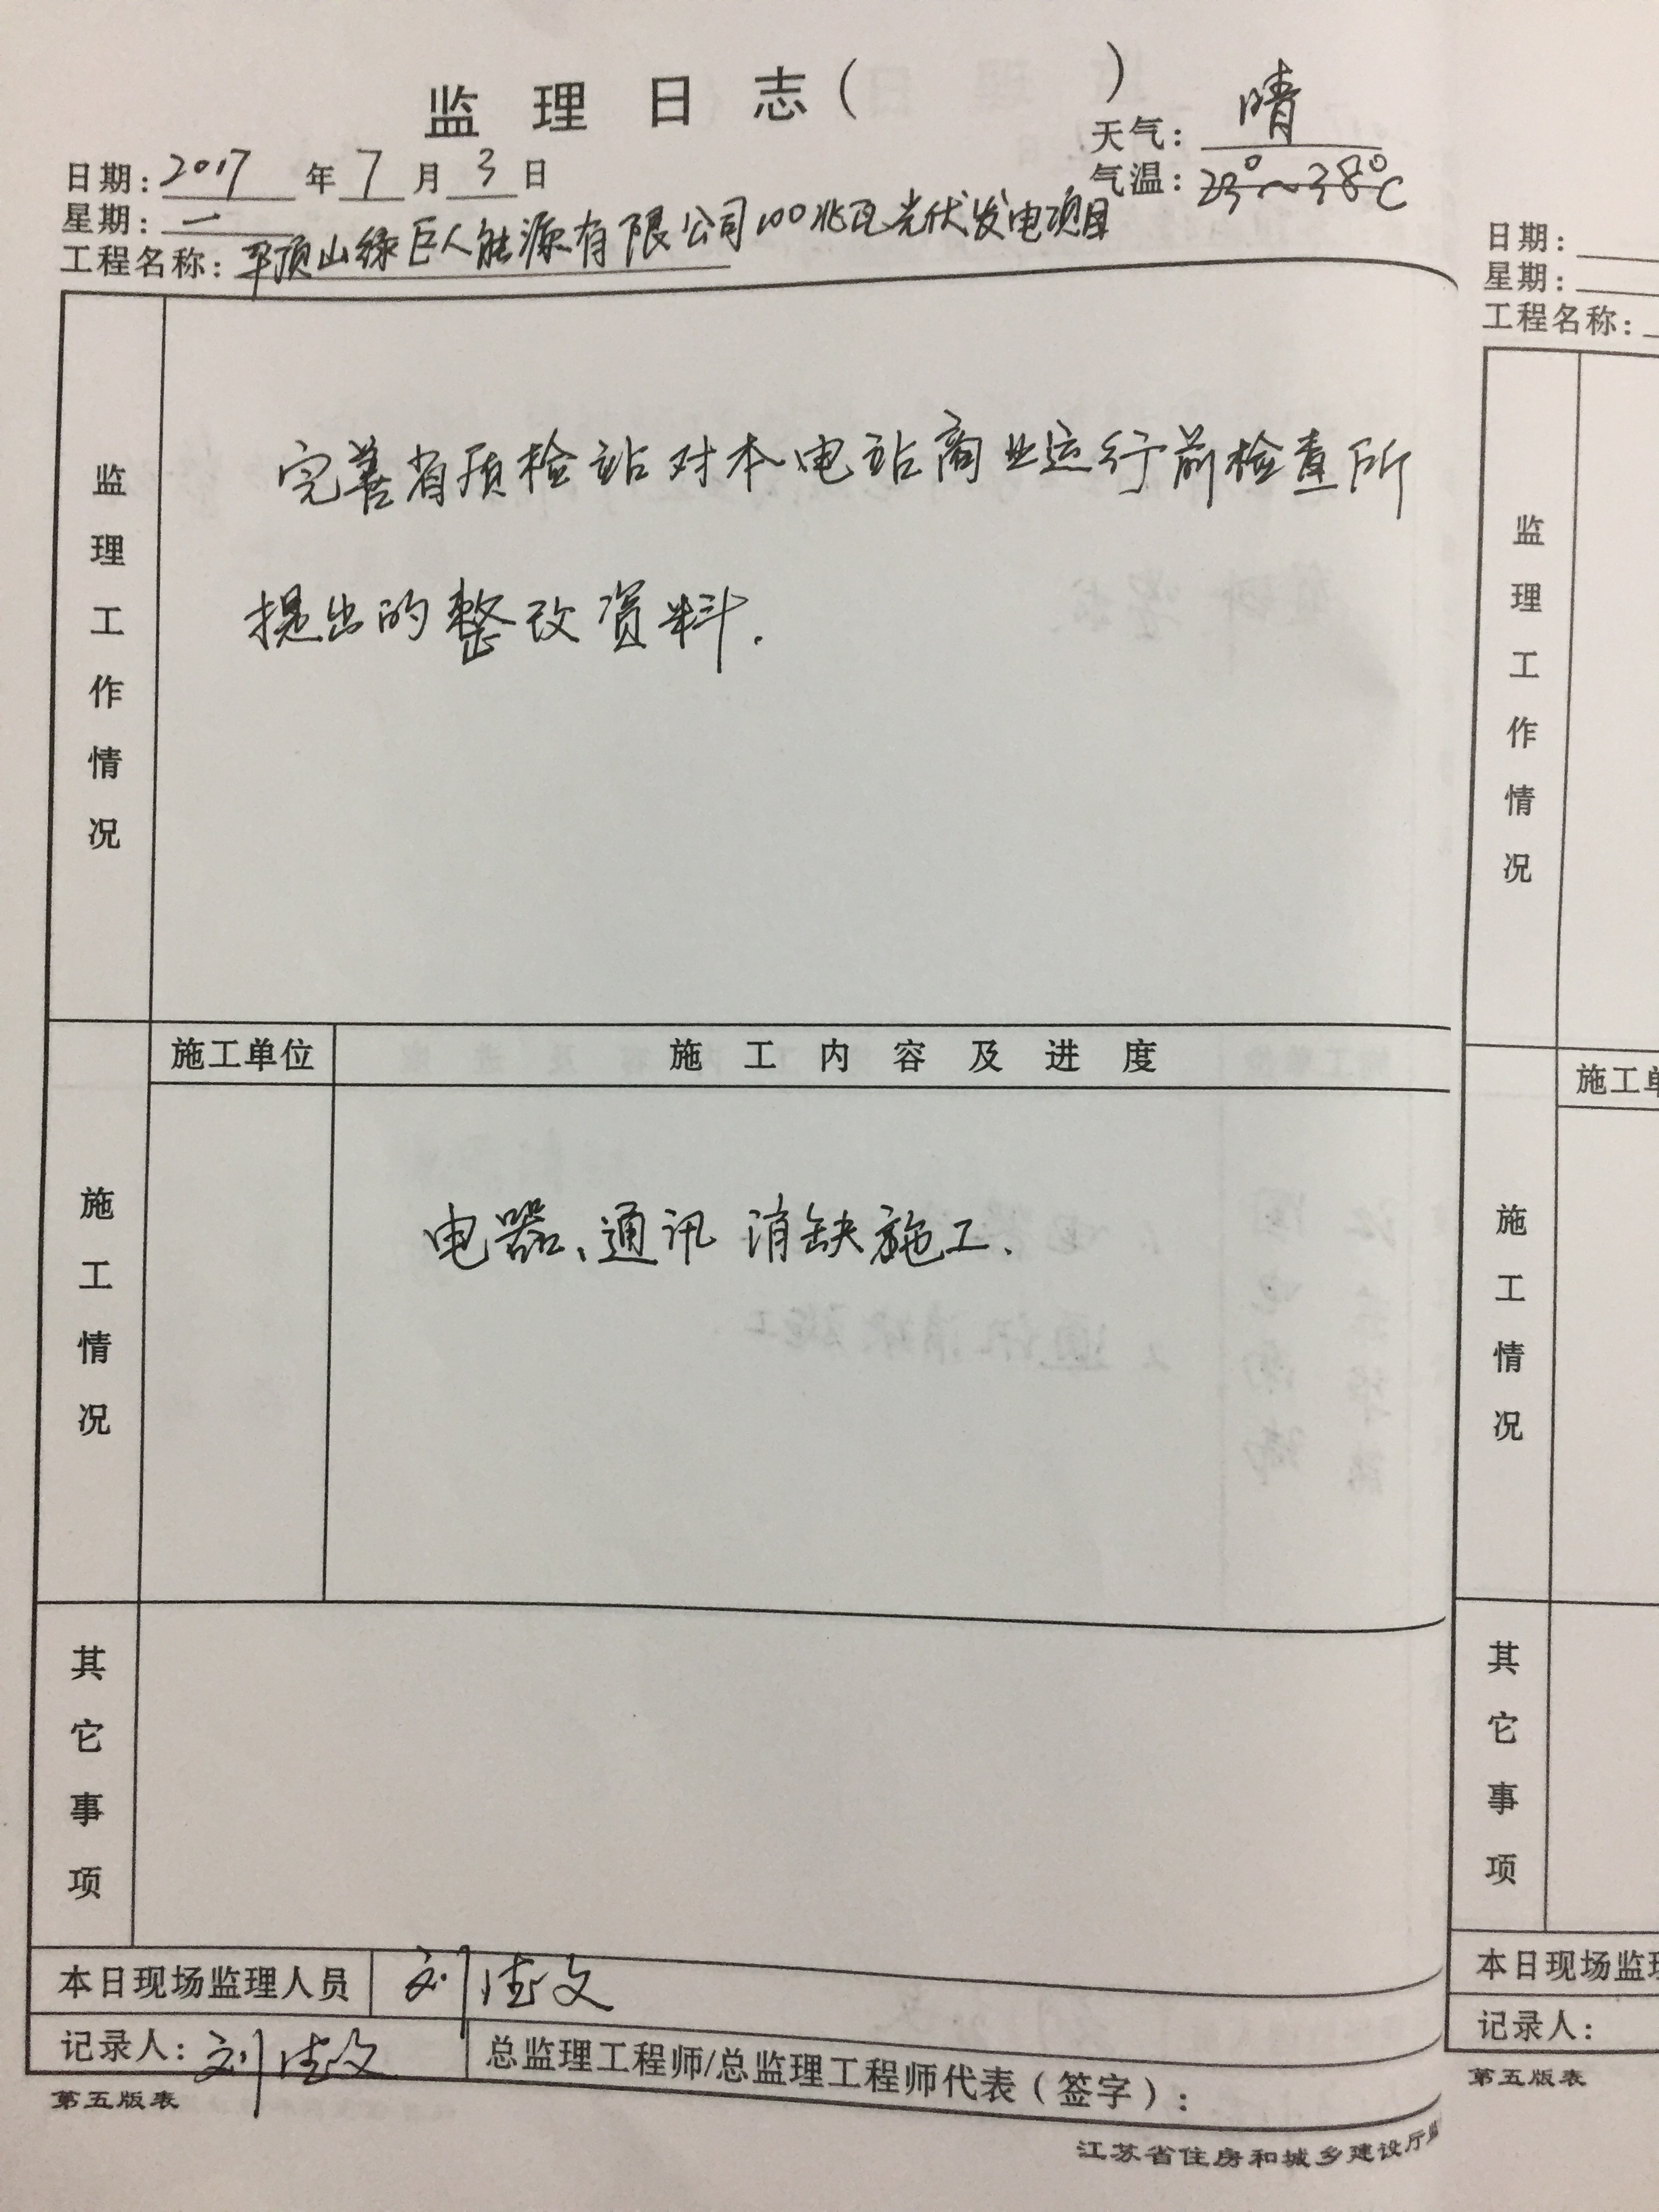 监理日志( )
天气：晴
日期：2017年7月3日
气温：23°~38°C
星期：一
工程名称：平顶山绿巨人能源有限公司100兆瓦光伏发电项目
监理工作情况
完善省质检站对本电站商业运行前检查所
提出的整改资料.
施工情况
施工单位 施工内容及进度
电器、通讯消缺施工、
其它事项
本日现场监理人员 刘 文
记录人：刘 文 总监理工程师/总监理工程师代表（签字）：
第五版表
江苏省住房和城乡建设厅
日期：
星期：
工程名称：
监理工作情况
施工情况
施工单
其它事项
本日现场监理
记录人：
第五版表